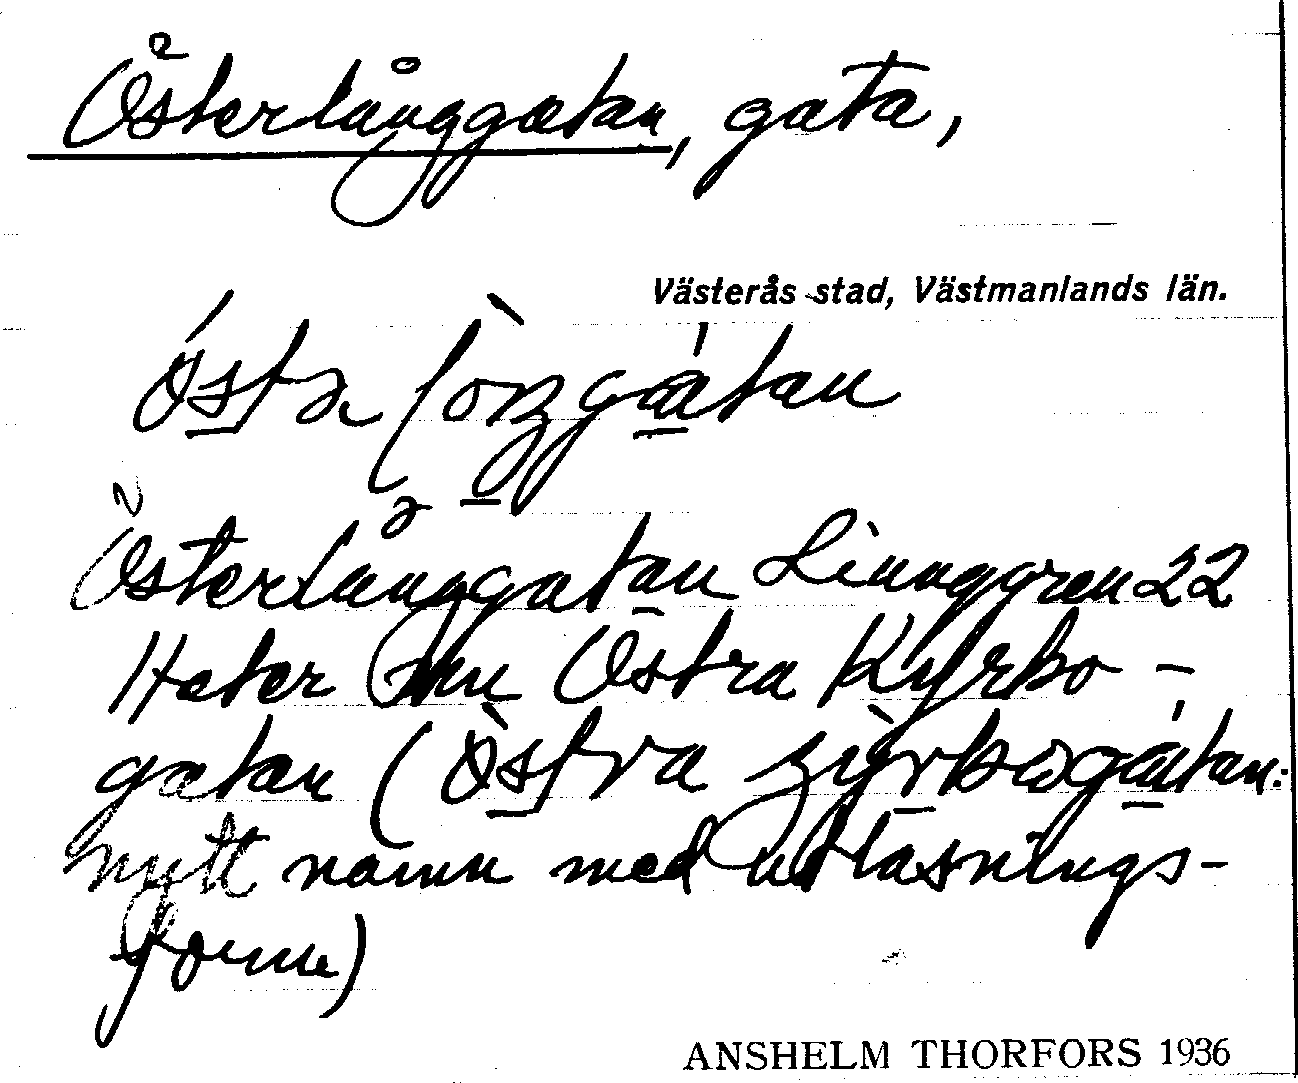 Österlånggatan, gata,
Västerås stad, Västmanlands län.
Österlånggatan Linnggren 22
Heter nu Östra Kyrko-
gatan (östra
nytt namn med utläsnings-
form)
ANSHELM THORFORS 1936